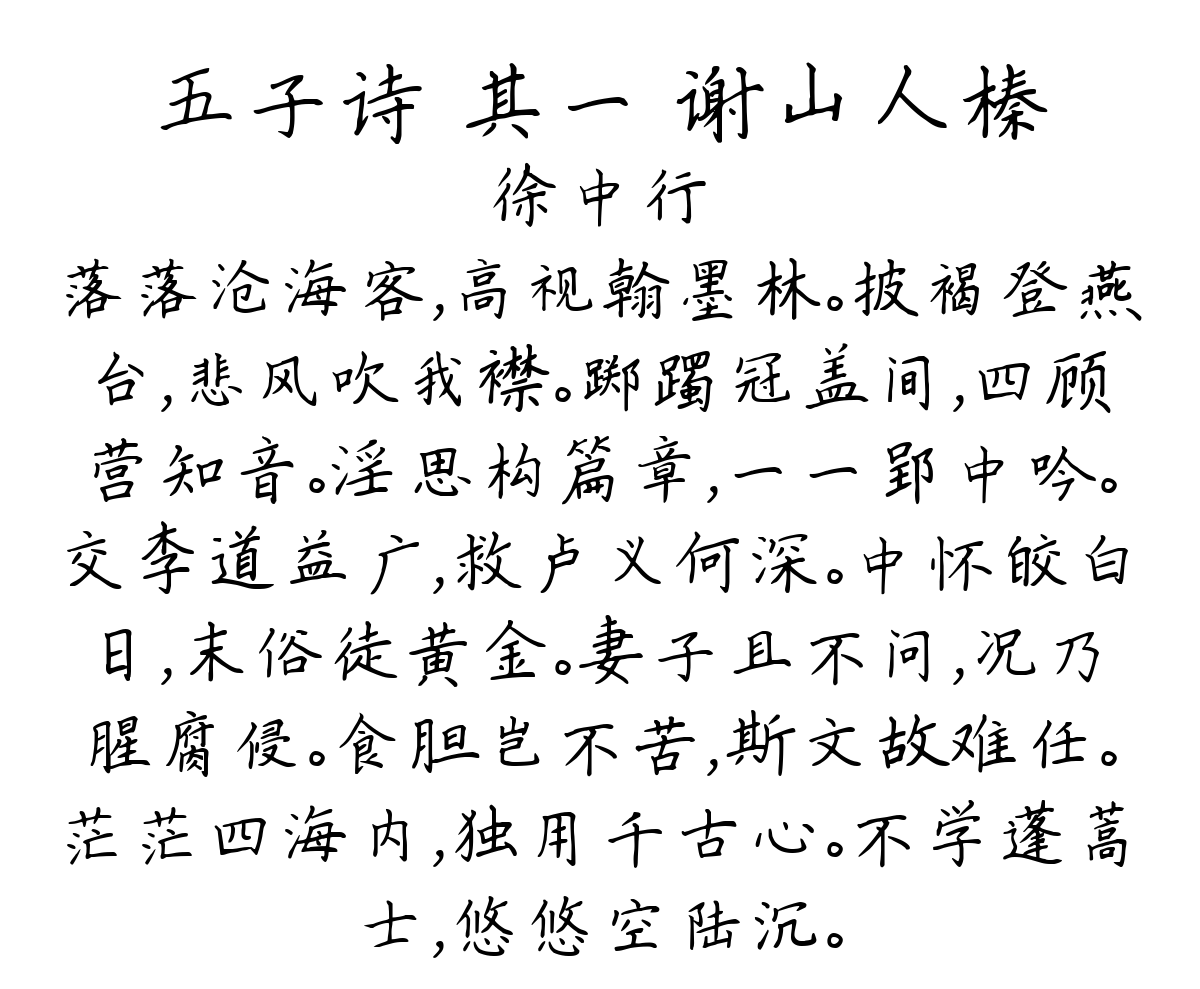 五子诗 其一 谢山人榛
徐中行
落落沧海客,高视翰墨林。披褐登燕
台,悲风吹我襟。踯躅冠盖间,四顾
营知音。淫思构篇章,一一郢中吟。
交李道益广,救卢义何深。中怀皎白
日,末俗徒黄金。妻子且不问,况乃
腥腐侵。食胆岂不苦,斯文故难任。
茫茫四海内,独用千古心。不学蓬蒿
士,悠悠空陆沉。